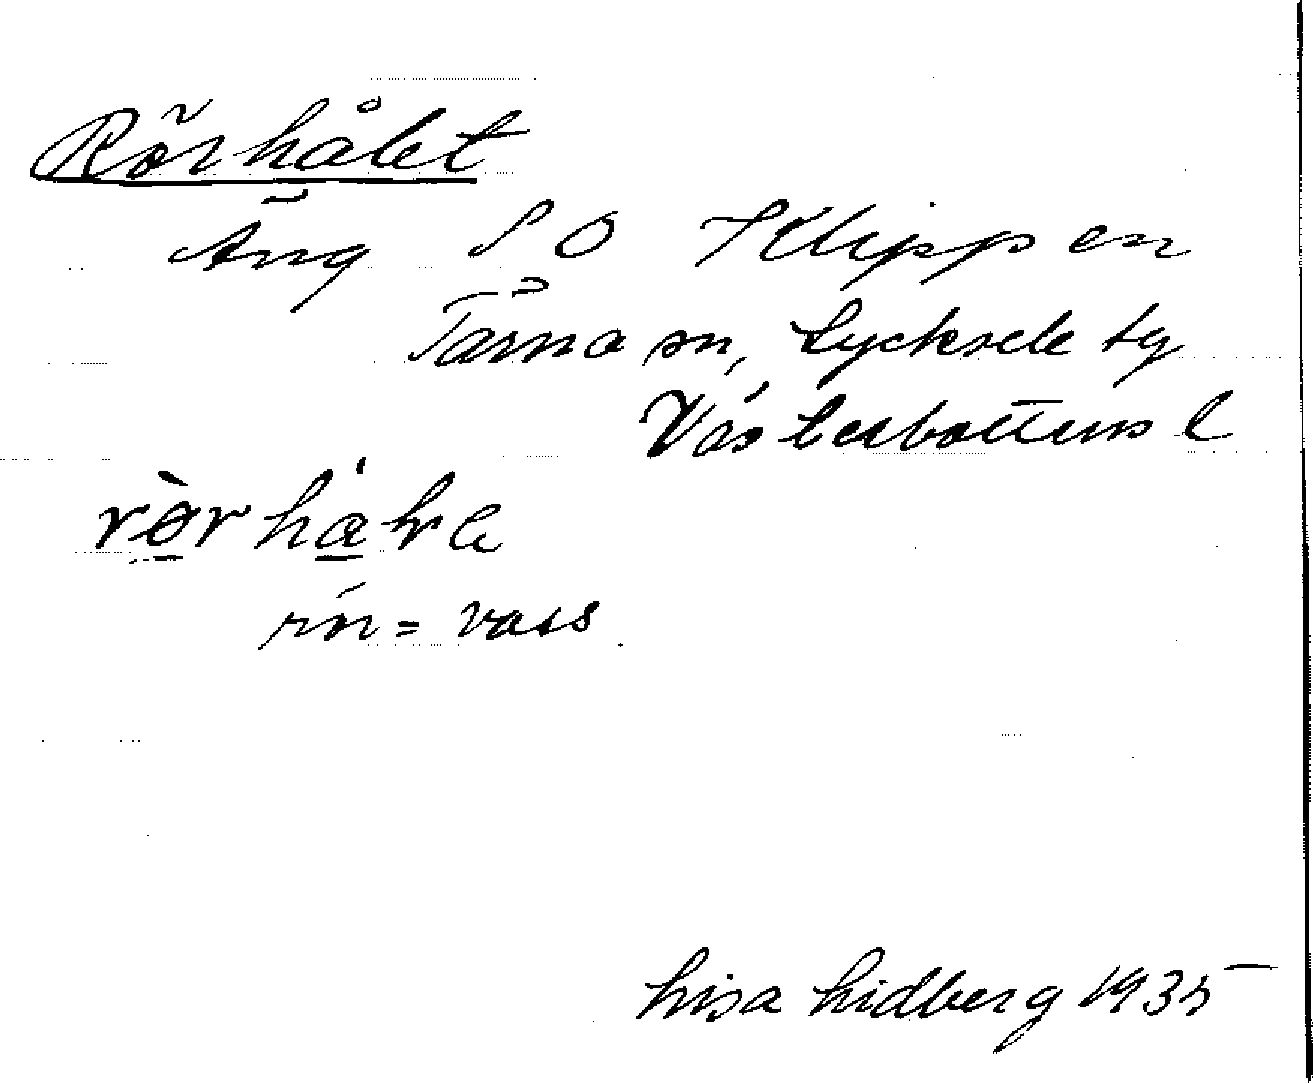 Rörhålet
Äng SO Klippen
Tärna sn, Lycksele tg
Västerbottens l
rör = vass.
Lisa Lidberg 1935